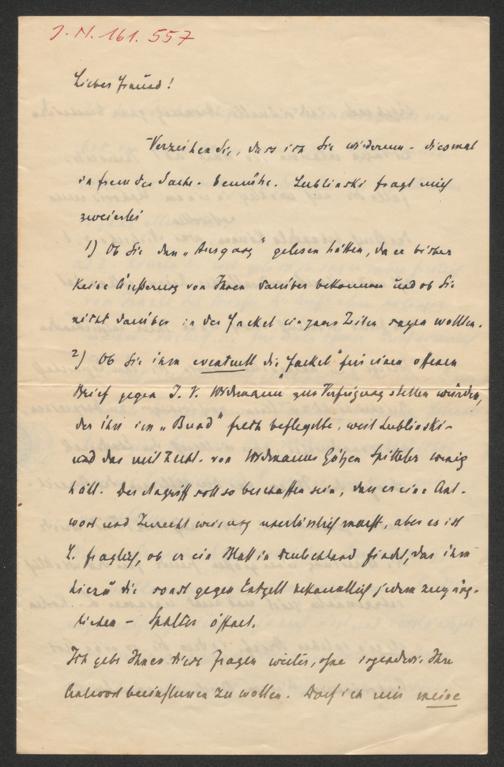 J. N. 161.557
Lieber Freund!
Verzeihen Sie, dass ich Sie wiederum - diesmal
in fremder Sache - bemühe. Lublinski fragt mich
zweierlei
1) Ob Sie den „Ausgang" gelesen hätten, da er bisher
keine Äußerung von Ihnen darüber bekommen und ob Sie
nicht darüber in der Fackel ein paar Zeilen sagen wollten.
2) Ob Sie ihm eventuell die „Fackel" für einen offenen
Brief gegen J. V. Widmann zur Verfügung stellen würden,
der ihn im „Bund" frech beflegelte, weil Lublinski -
und das mit Recht - von Widmanns Götzen Spitteler wenig
hält. Der Angriff soll so beschaffen sein, dass er eine Ant-
wort und Zurechtweisung unerlässlich macht, aber es ist
L. fraglich, ob er ein Blatt in Deutschland findet, das ihm
hiezu die sonst gegen Entgelt bekanntlich jedem zugäng-
lichen - Spalten öffnet.
Ich gebe Ihnen diese Fragen weiter, ohne irgendwie Ihre
Antwort beeinflussen zu wollen. Darf ich um meine